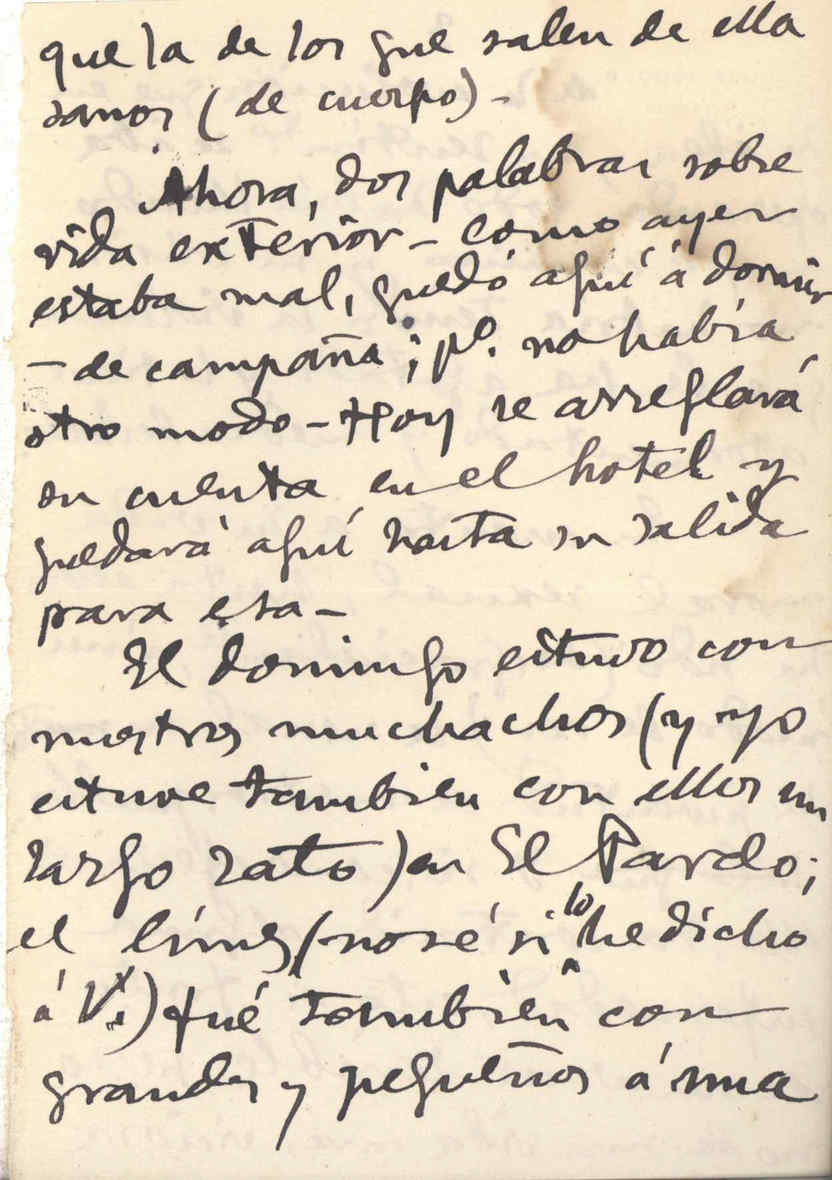 que la de los que salen de ella
sanos (de cuerpo) -
Ahora, dos palabras sobre
vida exterior - como ayer
estaba mal, quedó aquí á dormir
- de campaña; pº. no había
otro modo - Hoy se arreglará
su cuenta en el hotel y
quedará aquí hasta su salida
para esa -
El domingo estuvo con
nuestros muchachos (y yo
estuve también con ellos un
largo rato) en El Pardo;
el lunes, (no sé si lo he dicho
á V.) fué también con
grandes y pequeños á una